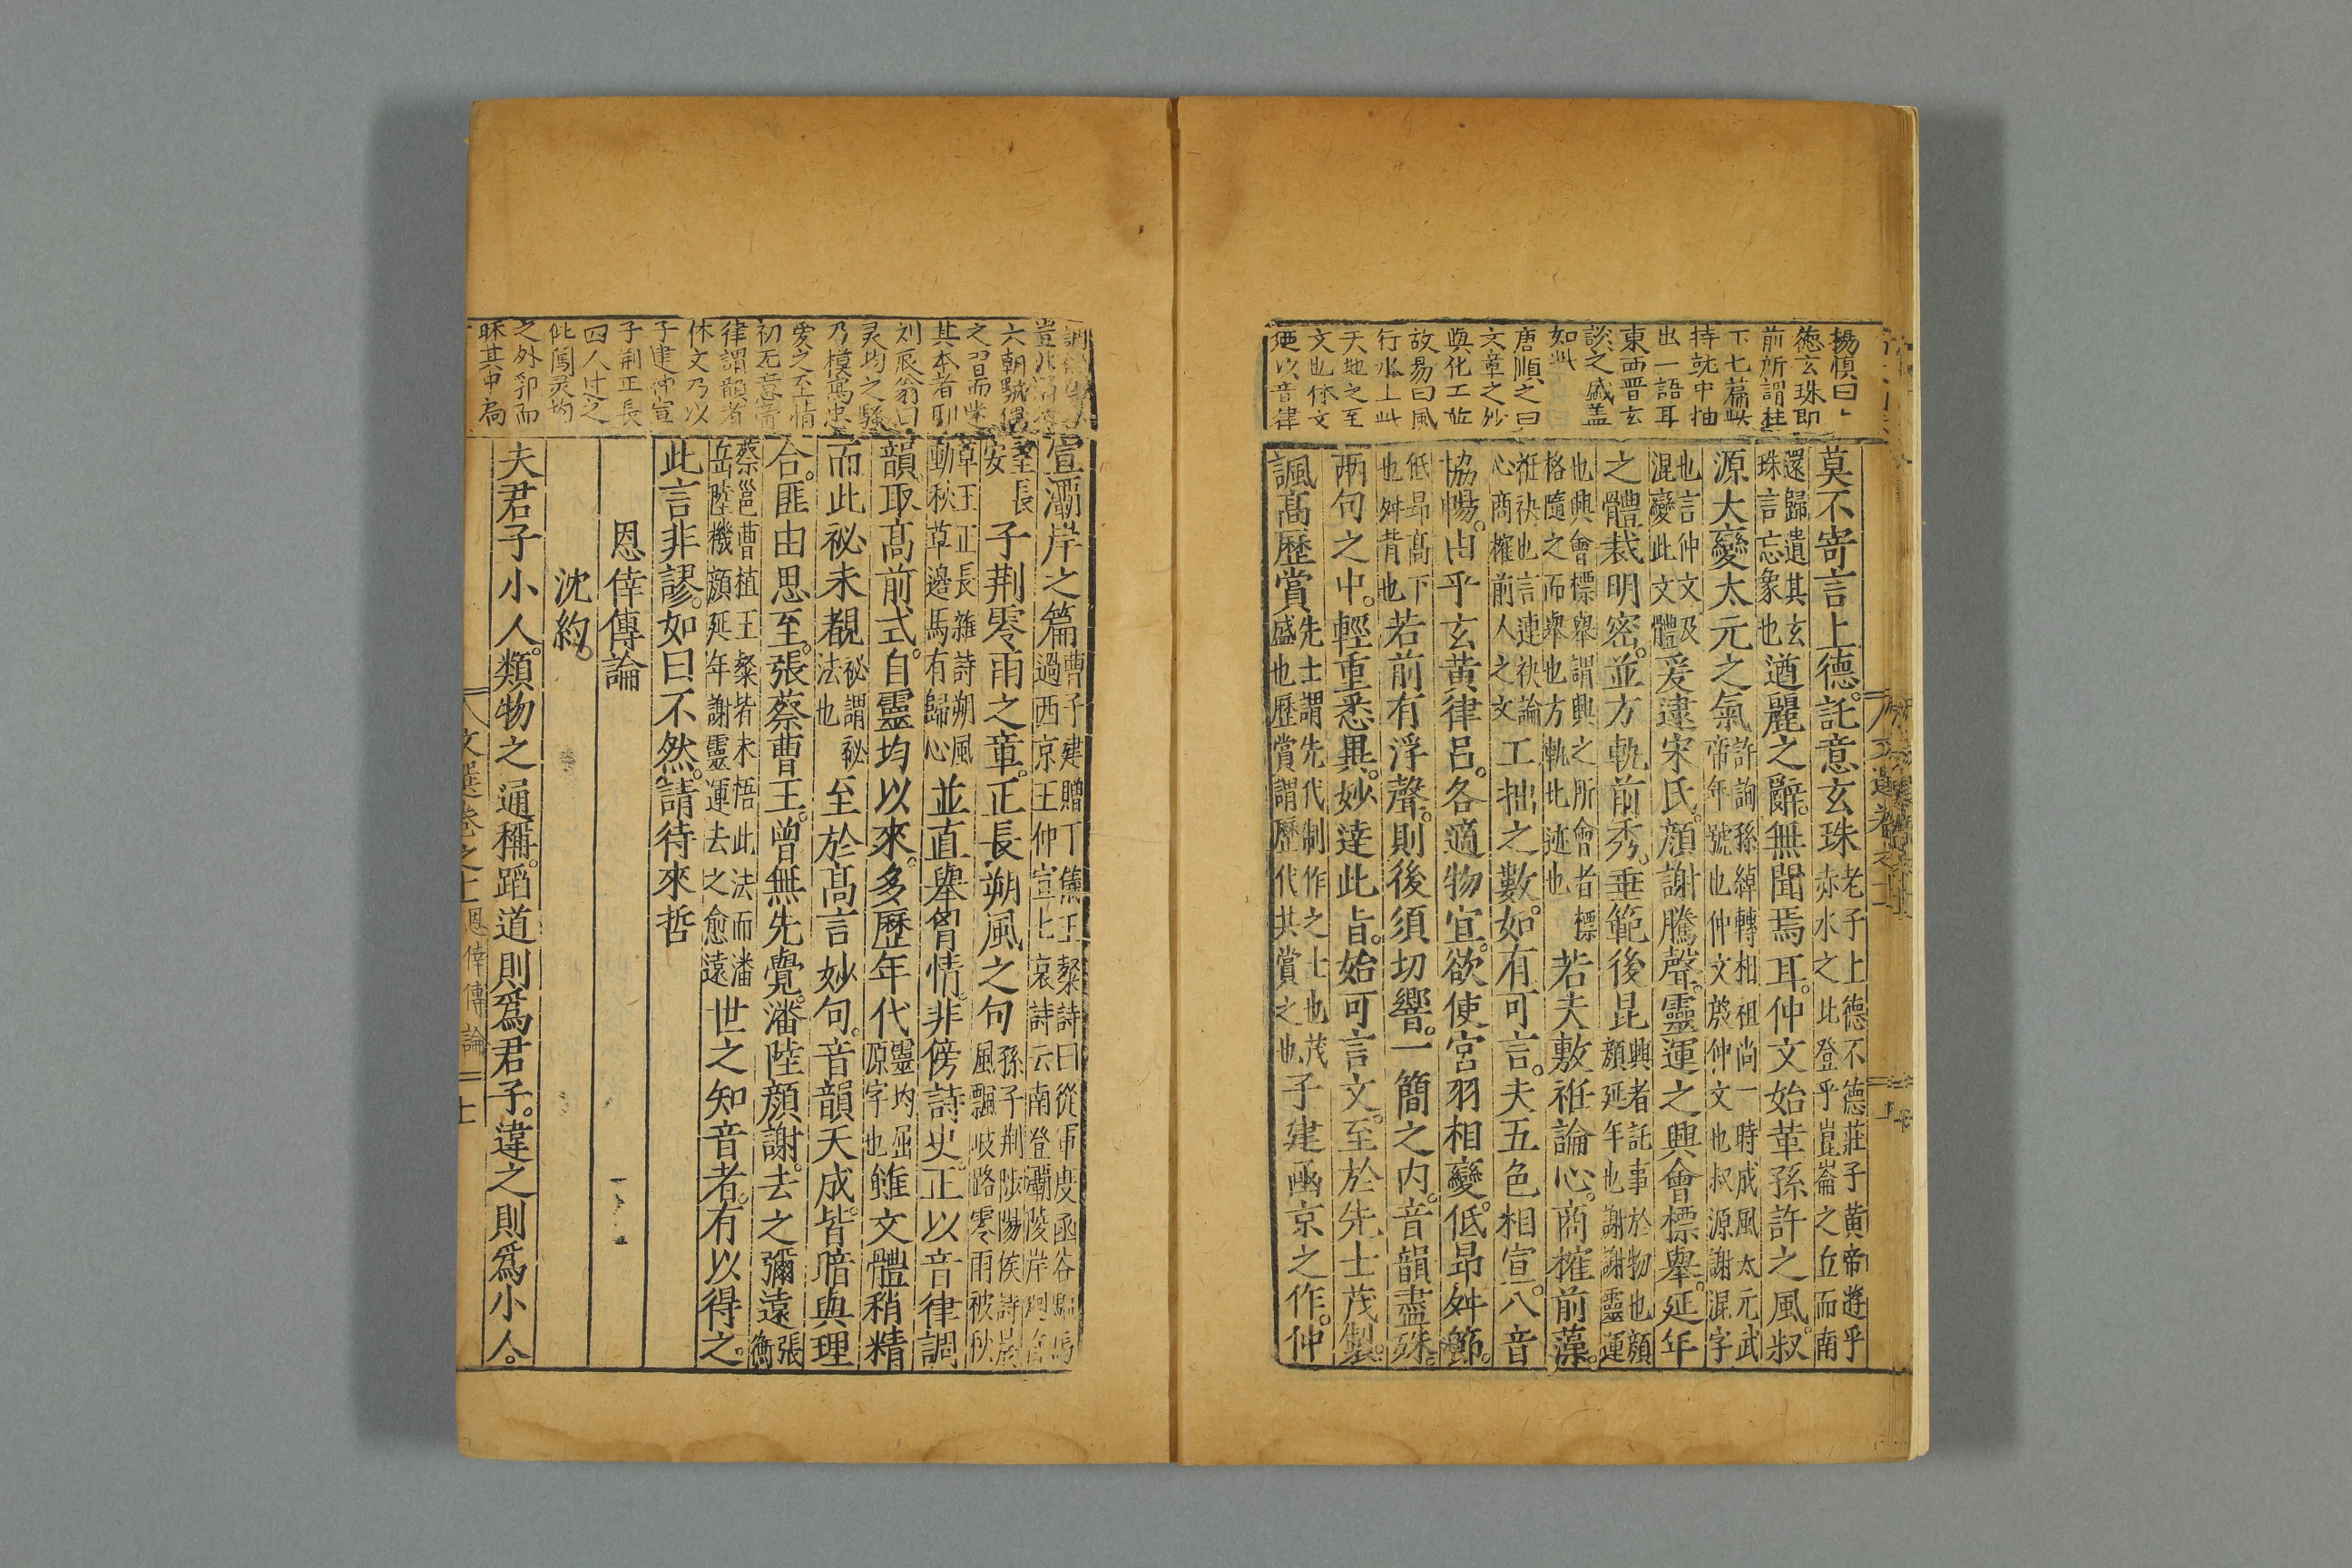 楊慎曰上
德玄珠即
前所謂莊
下七篇此
持就中抽
出一語耳
東西晋玄
談之盛盖
如此
唐順之曰
文章之妙
與化工並
故易曰風
行水上此
天地之至
文也休文
廼以音律
莫不寄言上德。託意玄珠老子上德不德莊子黄帝遊乎
赤水之北登乎崑崙之丘而南
還歸遺其玄
珠言忘象也遒麗之辭。無聞焉耳。仲文始革孫許之風。叔
源大變太元之氣許詢孫綽轉相祖尚一時成風太元武
帝年號也仲文殷仲文也叔源謝混字
也言仲文及
混變此文體爰逮宋氏。顔謝騰聲。靈運之興會標舉。延年
之體裁明密。並方軌前秀。垂範後昆興者託事於物也顔
顔延年也謝謝靈運
也興會標舉謂興之所會者標
格隨之而舉也方軌比迹也若夫敷衽論心。商榷前藻。
衽袂也言連袂論
心商榷前人之文工拙之數。如有可言。夫五色相宣。八音
協暢。由乎玄黄律呂。各適物宜。欲使宮羽相變。低昂舛節。
低昂髙下
也舛背也若前有浮聲。則後須切響。一簡之内。音韻盡殊。
兩句之中。輕重悉異。妙達此旨。始可言文。至於先士茂製。
諷髙歷賞先士謂先代制作之士也茂
盛也歷賞謂歷代共賞之也子建函京之作。仲
豈
六朝
之習而
其本者
刘辰翁曰
灵均之騷
乃模寫忠
爱之至情
初无意㫄
律謂韻者
休文乃以
子建仲宣
子荆正長
四人
此闖灵均
之外郛而
昧其中扃
宣灞岸之篇曹子建贈丁儀王粲詩曰從軍度函谷驅馬
過西京王仲宣七哀詩云南登灞陵岸廻首
望長
安子荆零雨之章。正長朔風之句孫子荆陟陽侯詩晨
風飄岐路零雨被秋
草王正長雜詩朔風
動秋草邊馬有歸心並直舉胷情。非傍詩史。正以音律調
韻。取髙前式。自靈均以來。多歷年代靈均屈
原字也雖文體稍精
而此祕未覩祕謂祕
法也至於髙言妙句。音韻天成。皆暗與理
合。匪由思至。張蔡曹王。曾無先覺。潘陸顔謝。去之彌遠張
衡
蔡邕曹植王粲皆未悟此法而潘
岳陸機顔延年謝靈運去之愈遠世之知音者。有以得之。
此言非謬。如曰不然。請待來哲
恩倖傳論
沈約。
夫君子小人。類物之通稱。蹈道則爲君子。違之則爲小人。
文選卷之上 恩倖傳論 十